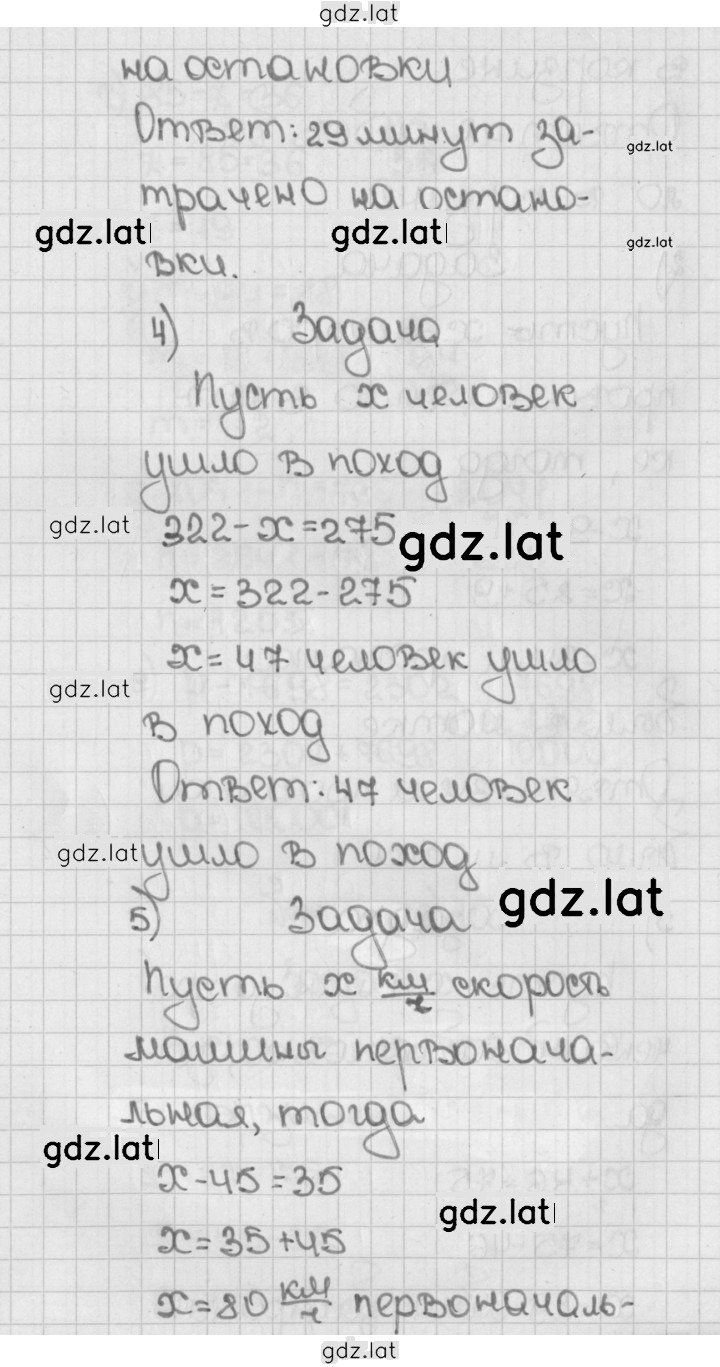 gdz.lat
на остановки
Ответ: 29 минут за-
gdz.lat
трачено на остано-
gdz.lat gdz.lat gdz.lat
вки.
4) Задача
Пусть x человек
ушло в поход
gdz.lat 322-x=275 gdz.lat
x=322-275
x=47 человек ушло
gdz.lat
в поход
Ответ: 47 человек
gdz.lat ушло в поход
gdz.lat
5) Задача
Пусть x км/ч скорость
машины первонача-
льная, тогда
gdz.lat
x-45=35
gdz.lat
x=35+45
x=80 км/ч первоначаль-
gdz.lat